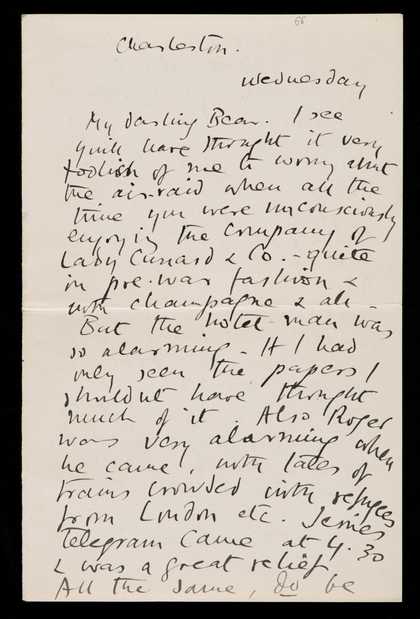 68
Charleston.
Wednesday
My darling Bear. I see
you'll have thought it very
foolish of me to worry about
the air-raid when all the
time you were unconsciously
enjoying the company of
Lady Cunard & Co. - quite
in pre-war fashion &
with champagne & all -
But the hotel-man was
so alarming. If I had
only seen the papers I
shouldn't have thought
much of it. Also Roger
was very alarming when
he came, with tales of
trains crowded with refugees
from London etc. Jessie's
telegram came at 4.30
& was a great relief
All the same, do be